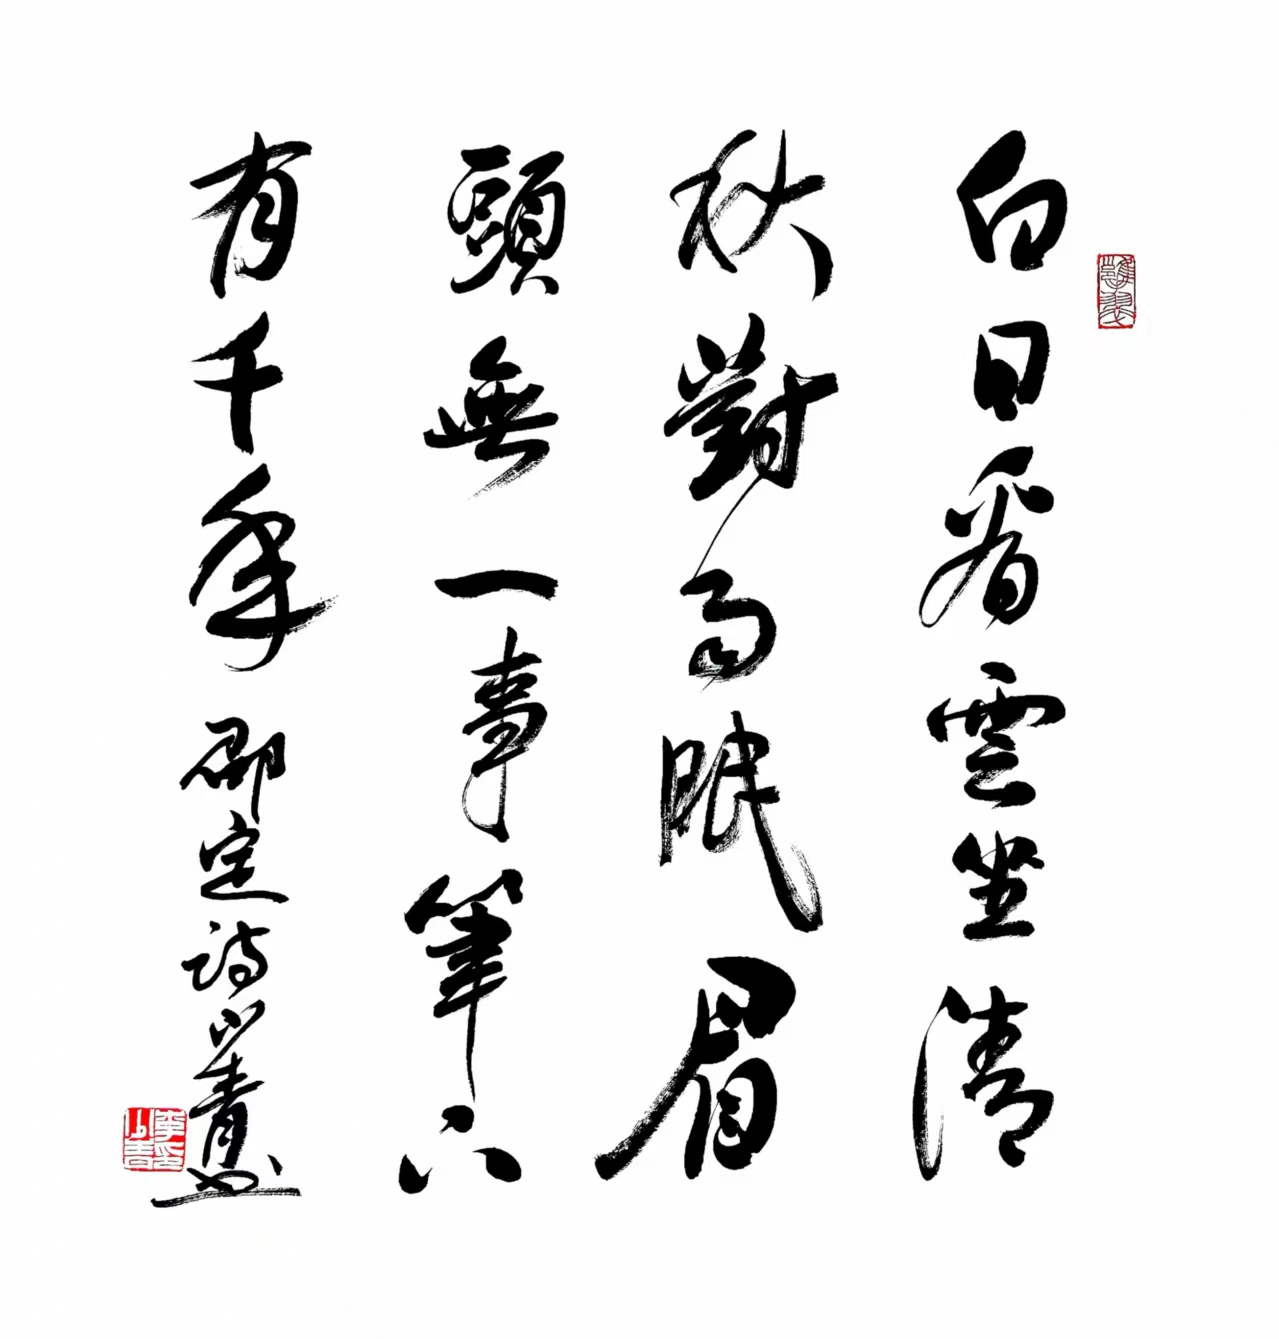 白日看雲坐清
秋對雨眠眉
頭無一事筆下
有千年 邵定诗 青